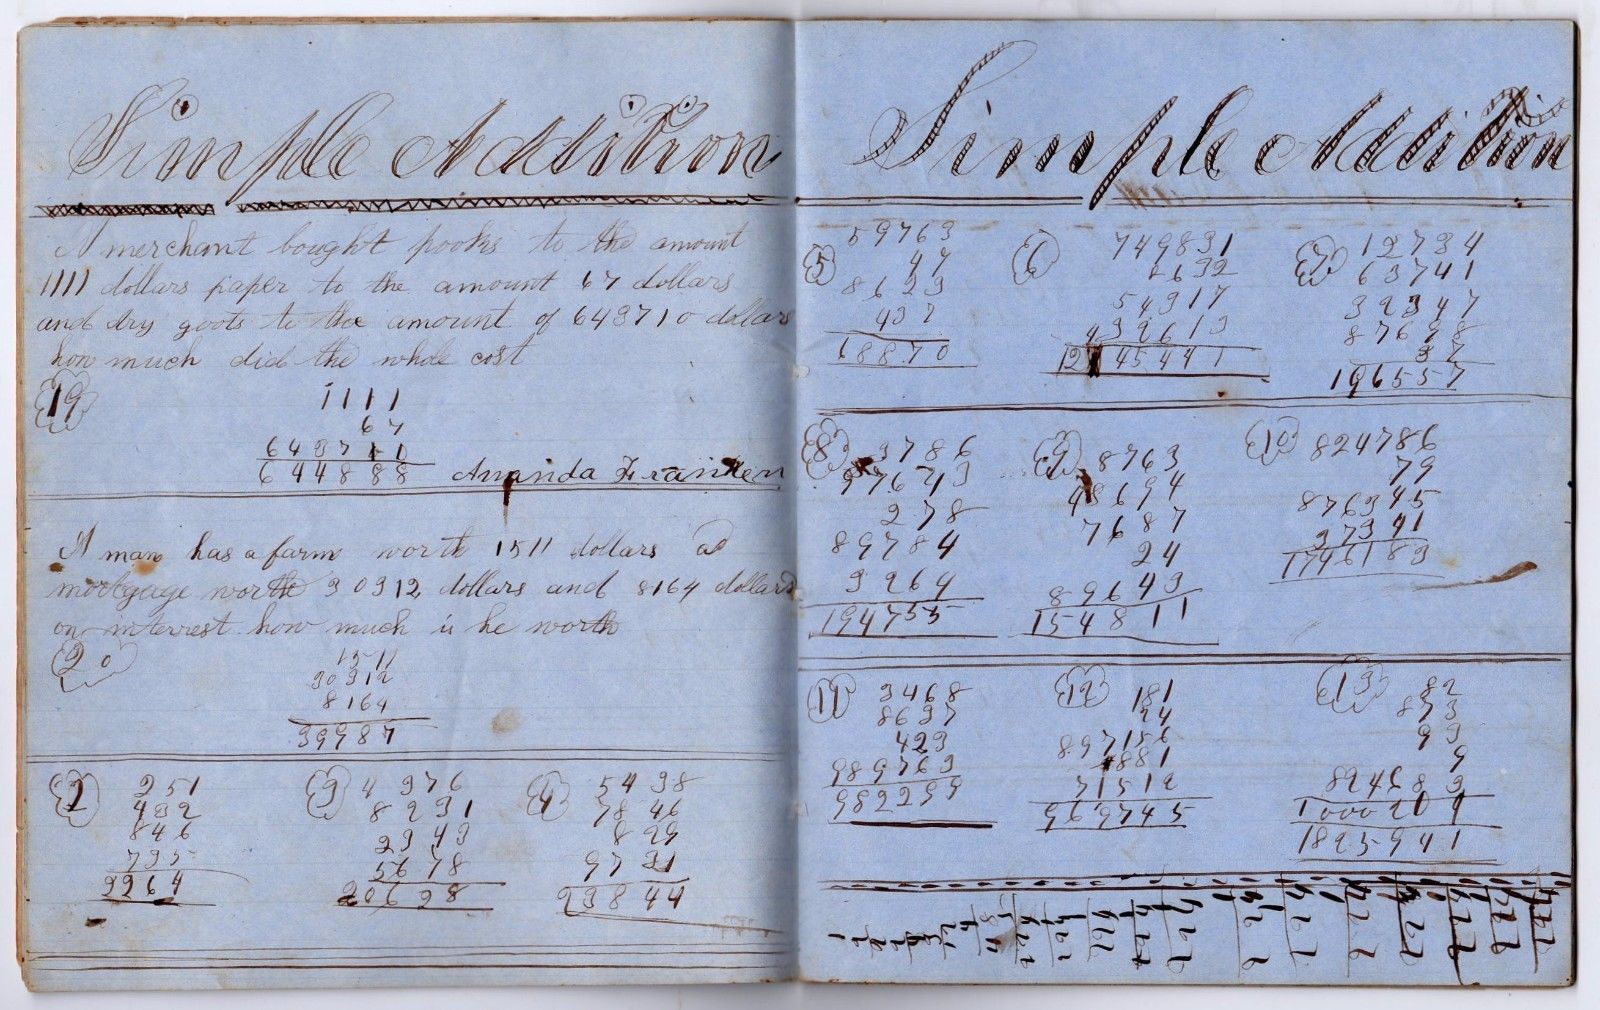 Simple Addition
A merchant bought pooks to the amount
1111 dollars paper to the amount 67 dollars
and dry goots to the amount of 643710 dollars
how much did the whole cost
19
1111
67
643710
644888
Amanda Franken
A man has a farm worth 1511 dollars a
mortgage worth 30312 dollars and 8164 dollars
on interrest how much is he worth
20
1511
30312
8164
39987
2
251
432
846
735
2264
3
4376
8231
2343
5678
20628
4
5438
7846
829
9731
23844
Simple Addition
5
59763
47
8623
437
68870
6
749831
2632
54317
439613
1245441
7
12734
63741
32347
87698
37
196557
8
3786
97643
278
89784
3264
194755
9
8763
48694
7687
24
89643
154811
10
824786
79
876345
37341
1746183
11
3468
8637
423
989763
982299
12
181
24
897156
4881
71512
969745
13
82
873
93
9
824683
1000204
1825941